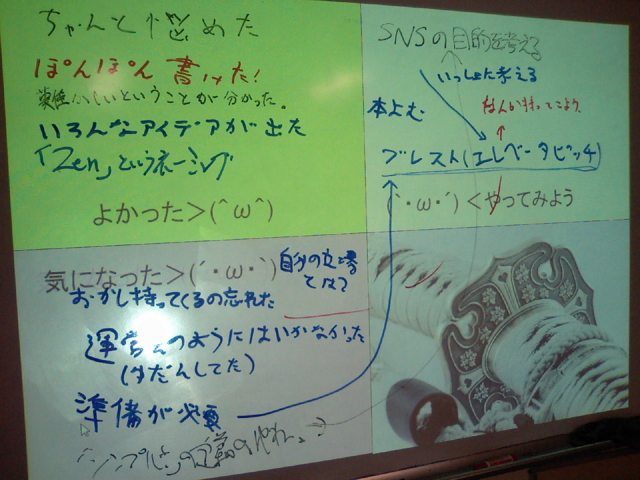 ちゃんと悩めた
ぽんぽん書けた!
難しいということが分かった。
いろんなアイデアが出た
「Zen」というネーミング
よかった>(^ω^)
SNSの目的を考える
いっしょに考える
本よむ
なんか持ってこよう
ブレスト(エレベータピッチ)
(´・ω・´)<やってみよう
気になった>(´・ω・`)
自分の立場
とは?
おかし持ってくるの忘れた
運営のようにはいかなかった
(ゆだんしてた)
準備が必要
「シンプル」の定義